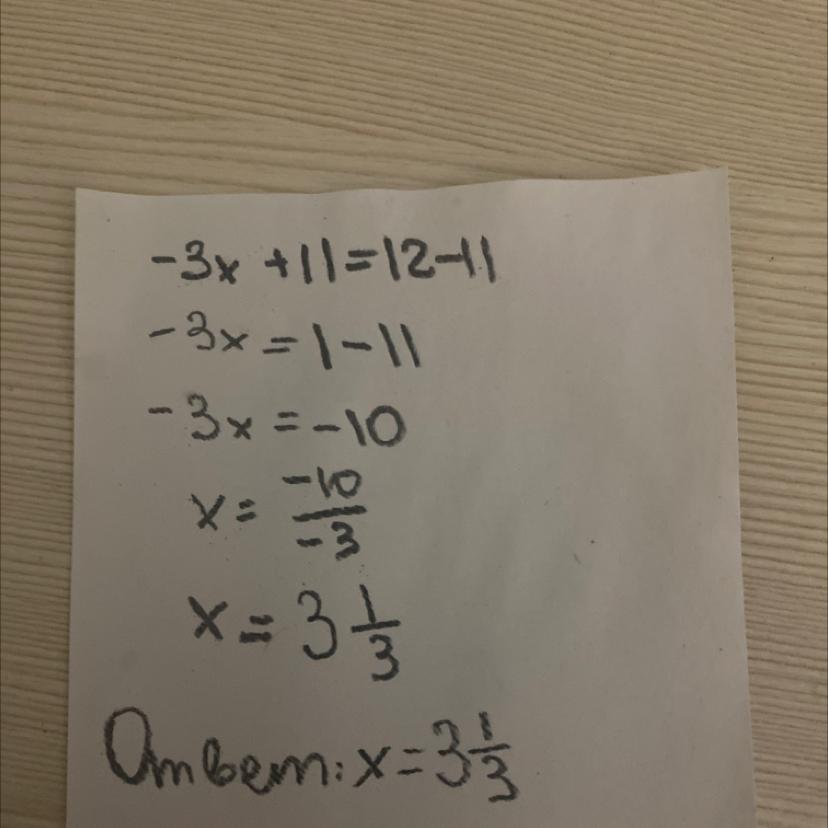 -3x +11=12-11
-3x = 1-11
-3x = -10
x = -10/-3
x = 3 1/3
Ответ: x = 3 1/3